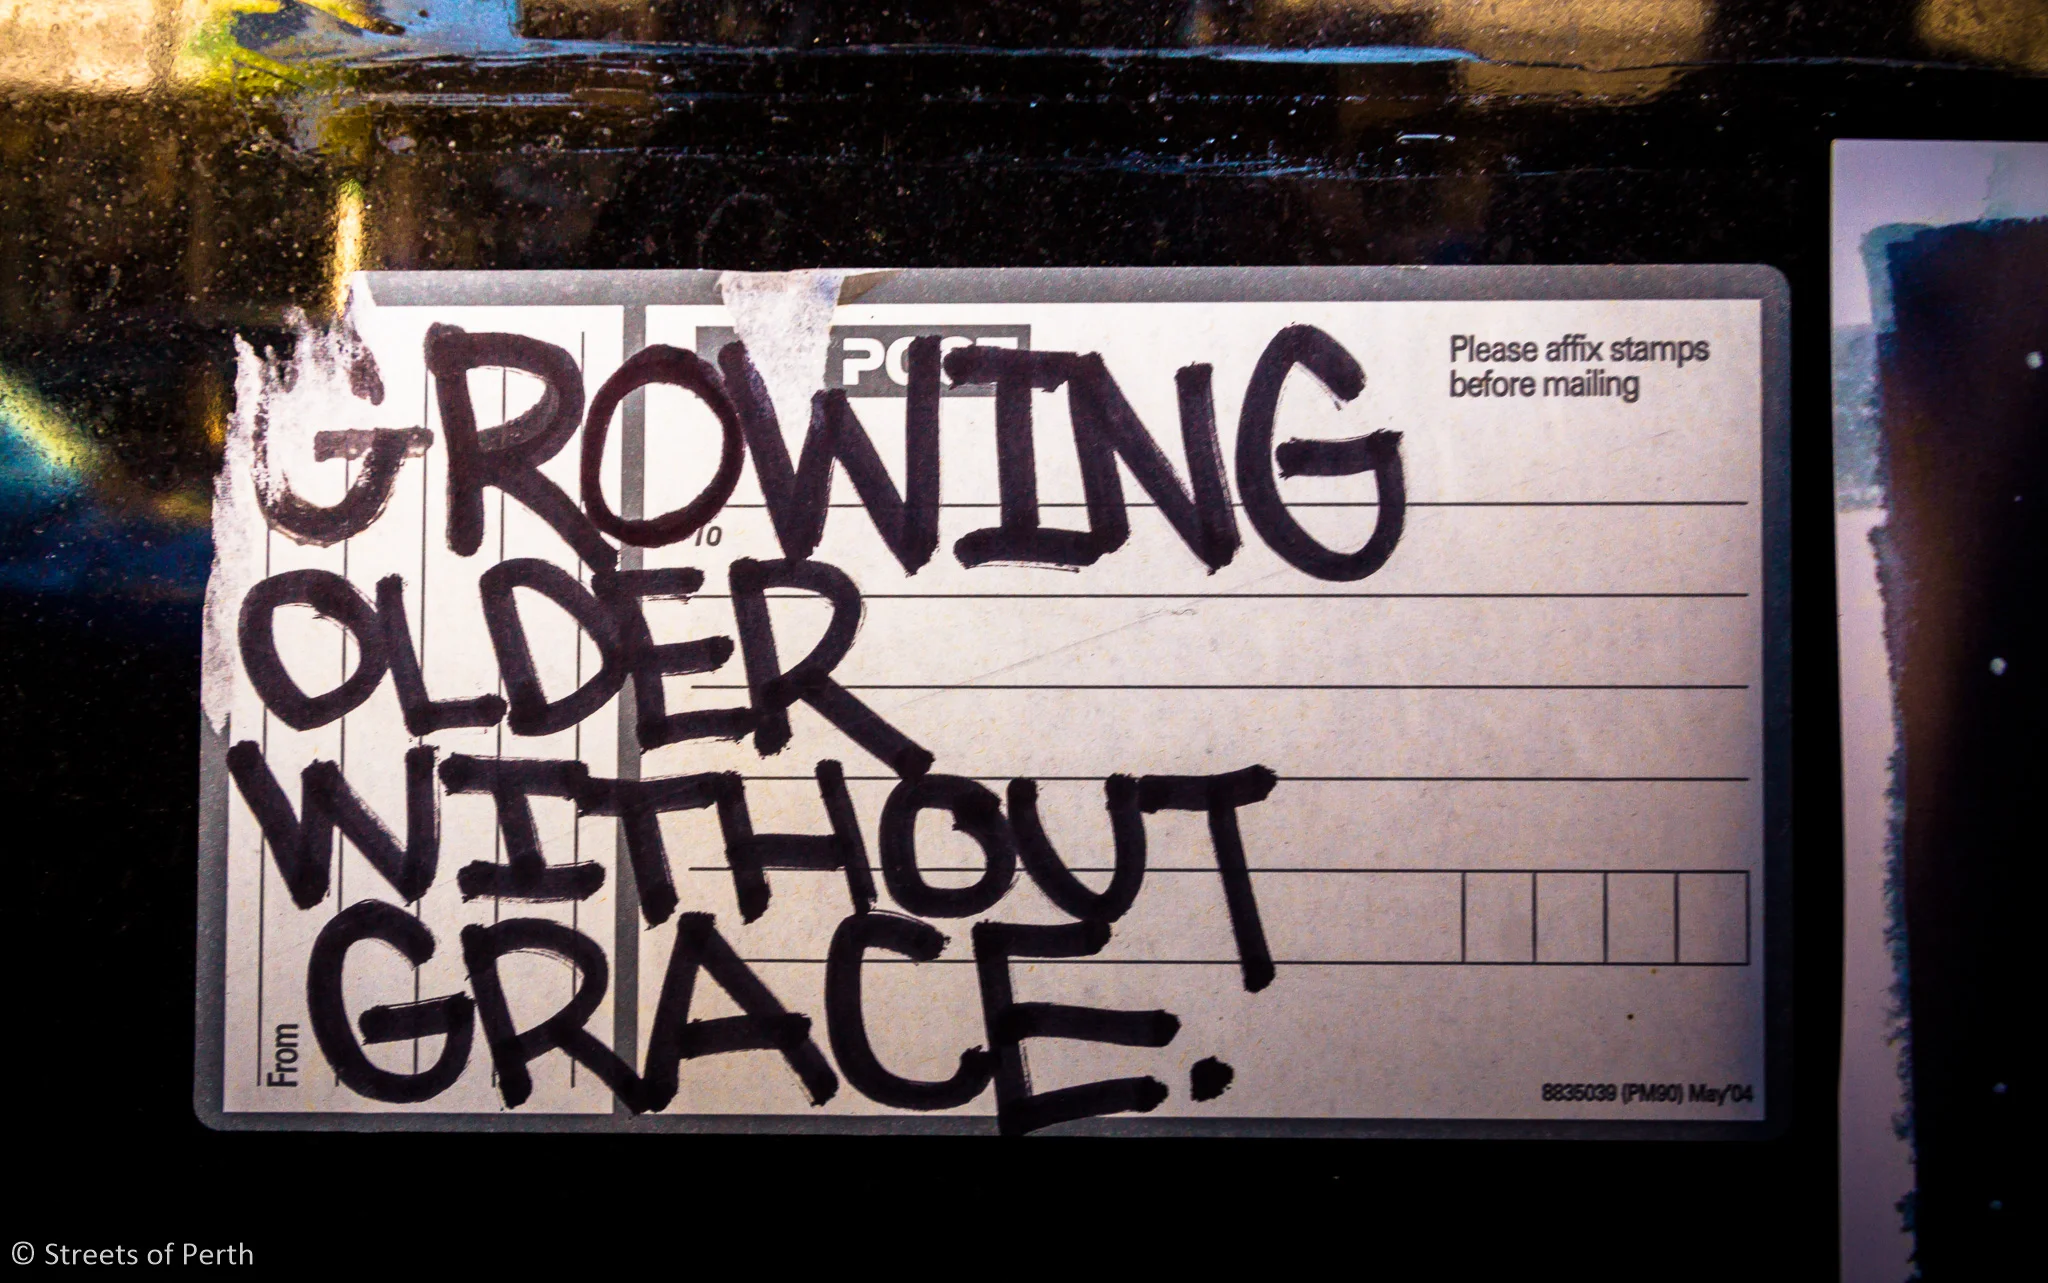 GROWING
OLDER
WITHOUT
GRACE.
POST
Please affix stamps
before mailing
To
From
8835039 (PM90) May'04
© Streets of Perth